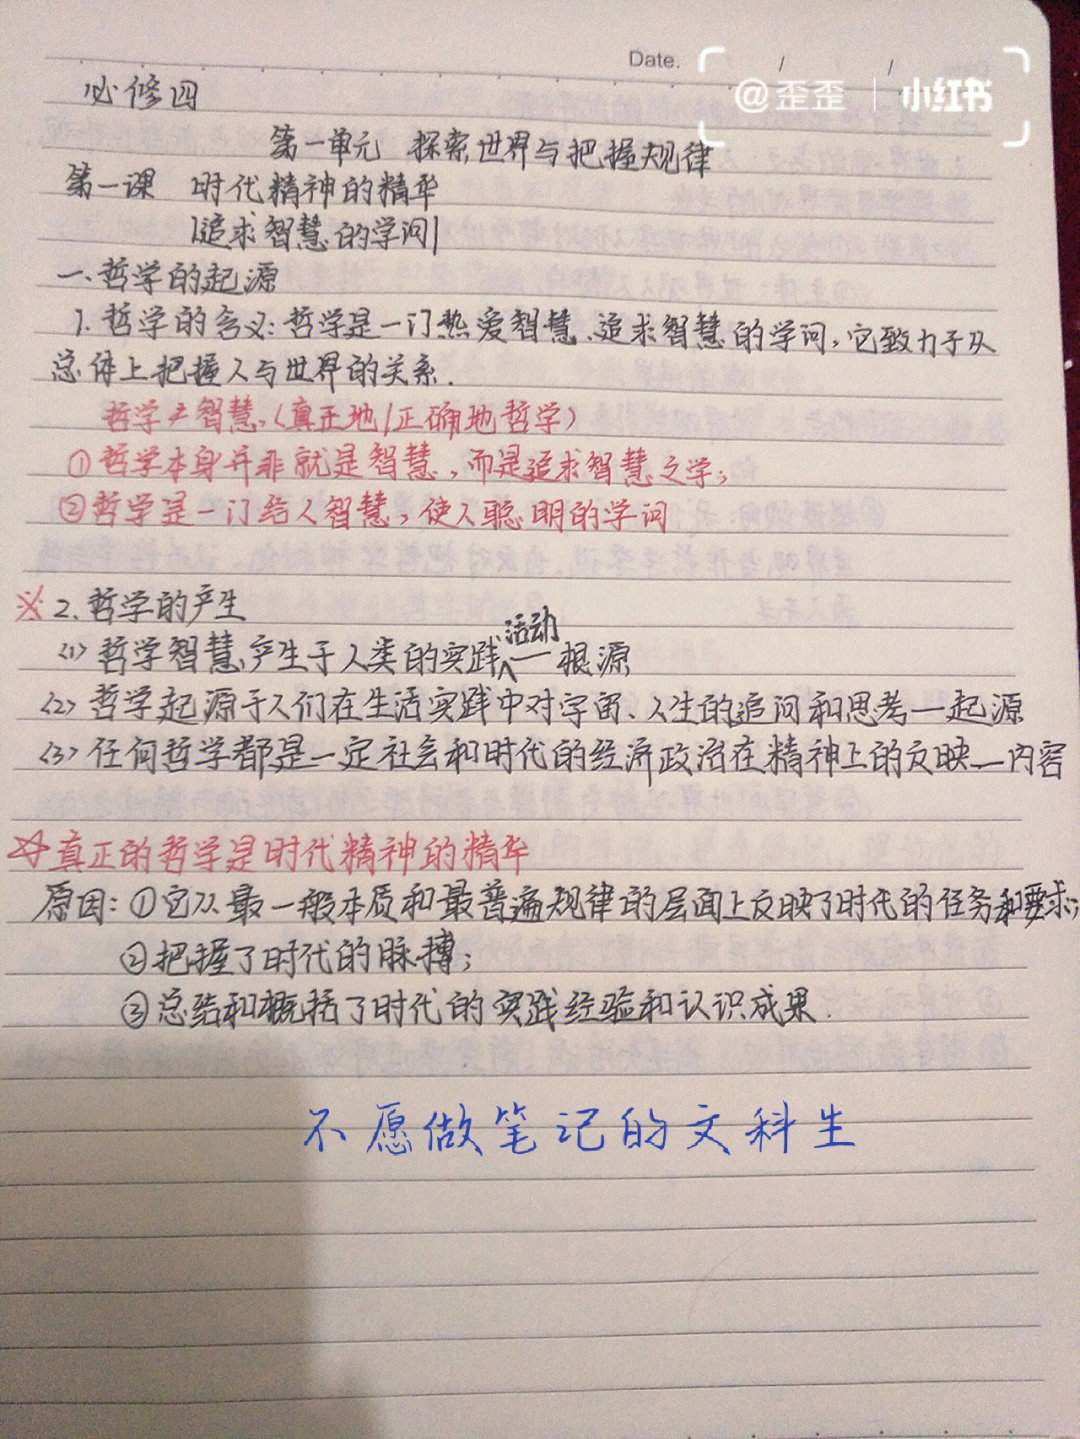 Date. / /
@歪歪 | 小红书
必修四
第一单元 探索世界与把握规律
第一课 时代精神的精华
|追求智慧的学问|
一.哲学的起源
1.哲学的含义:哲学是一门热爱智慧、追求智慧的学问,它致力于从
总体上把握人与世界的关系.
哲学≠智慧,(真正地/正确地哲学)
①哲学本身并非就是智慧,而是追求智慧之学;
②哲学是一门给人智慧,使人聪明的学问
※2.哲学的产生
活动
(1)哲学智慧产生于人类的实践∧—根源
(2)哲学起源于人们在生活实践中对宇宙、人生的追问和思考—起源
(3)任何哲学都是一定社会和时代的经济政治在精神上的反映—内容
☆真正的哲学是时代精神的精华
原因:①它从最一般本质和最普遍规律的层面上反映了时代的任务和要求;
②把握了时代的脉搏;
③总结和概括了时代的实践经验和认识成果.
不愿做笔记的文科生